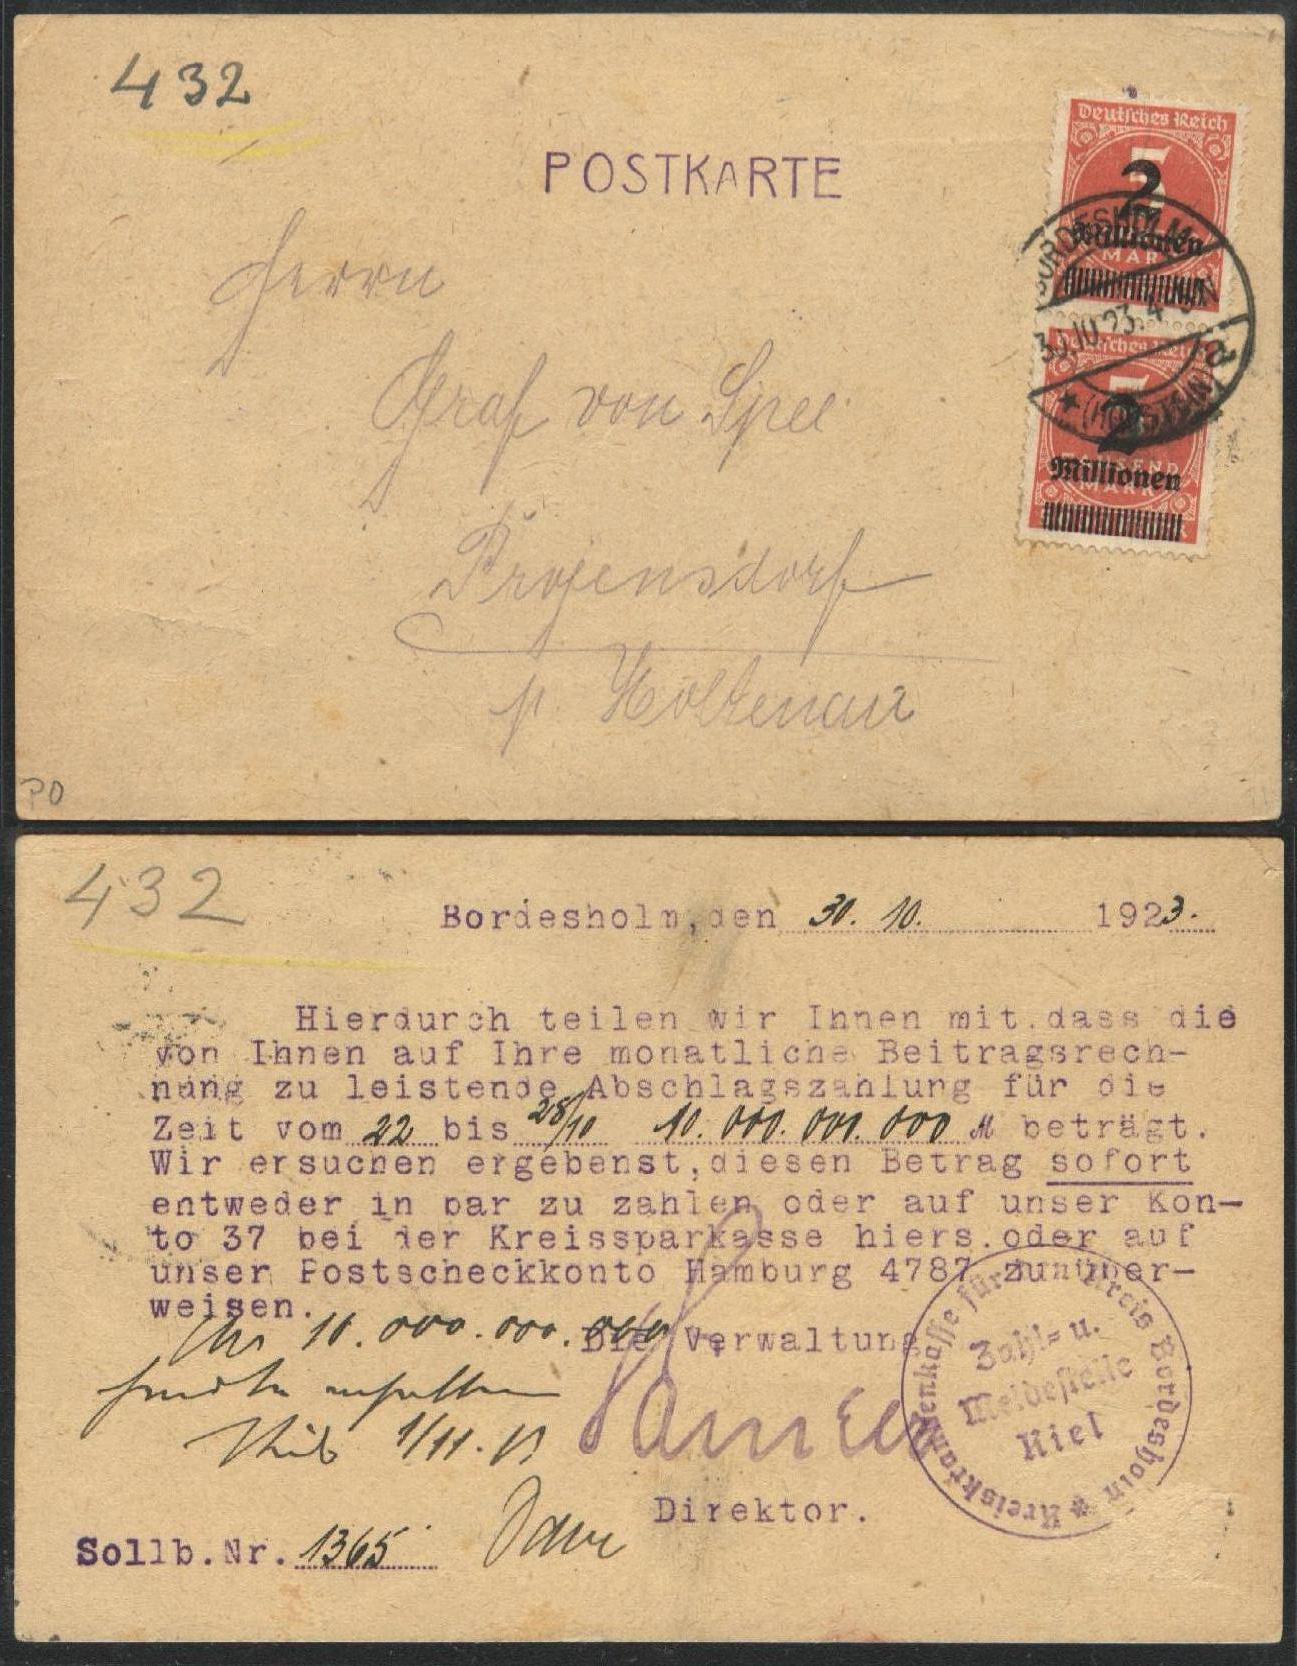 432
POSTKARTE
Deutsches Reich
2
Millionen
MARK
BORDESHOLM
30.10.23.4-5 N
(HOLSTEIN)
Deutsches Reich
2
Millionen
TAUSEND
MARK
Herrn
Graf von Spee
Projensdorf
p. Holtenau
PO
432
Bordesholm, den 30. 10. 1923.
Hierdurch teilen wir Ihnen mit, dass die
von Ihnen auf Ihre monatliche Beitragsrech-
nung zu leistende Abschlagszahlung für die
Zeit vom 22 bis 28/10 10.000.000.000 M beträgt.
Wir ersuchen ergebenst, diesen Betrag sofort
entweder in bar zu zahlen oder auf unser Kon-
to 37 bei der Kreissparkasse hiers. oder auf
unser Postscheckkonto Hamburg 4787 zu über-
weisen.
Die Verwaltung
10.000.000.000
erhalten
Kiel 1/11.
Direktor.
Kreiskrankenkasse für den Kreis Bordesholm *
Zahl= u.
Meldestelle
Kiel
Sollb.Nr. 1365